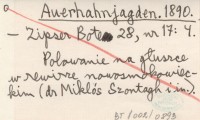 Auerhahnjagden. 1890.
– Zipser Bote 28, nr 17: 4.
Polowanie na głuszce
w rewirze nowosmokowiec-
kim (dr Miklós Szontagh i in.).
BT/002/0893